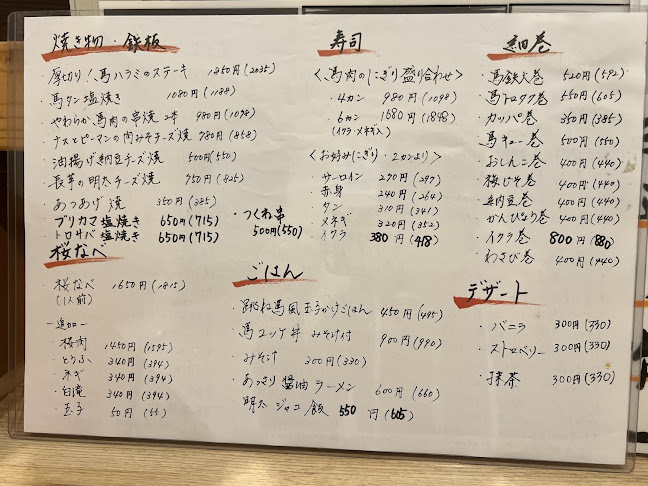 焼き物・鉄板
・厚切り!馬ハラミのステーキ 1850円(2035)
・馬タン塩焼き 1080円(1188)
・やわらか馬肉の串焼 2本 980円(1078)
・ナスとピーマンの肉みそチーズ焼 780円(858)
・油揚げ納豆チーズ焼 500円(550)
・長芋の明太チーズ焼 750円(825)
・あつあげ焼 350円(385)
・ブリカマ塩焼き 650円(715)
・トロサバ塩焼き 650円(715)
・つくね串
500円(550)
桜なべ
・桜なべ 1650円(1815)
(1人前)
ー追加ー
・桜肉 1450円(1595)
・とうふ 340円(394)
・ネギ 340円(394)
・白滝 340円(394)
・玉子 50円(55)
寿司
<馬肉のにぎり盛り合わせ>
・4カン 980円(1098)
・6カン 1680円(1848)
(イクラ・メギ入)
<お好みにぎり・2カンより>
・サーロイン 270円(297)
・赤身 240円(264)
・タン 310円(341)
・メネギ 320円(352)
・イクラ 380円(418)
ごはん
・跳ね馬風玉子かけごはん 450円(495)
・馬ユッケ丼 みそ汁付 900円(990)
・みそ汁 300円(330)
・あっさり醤油ラーメン 600円(660)
・明太ジャコ飯 550円(605)
細巻
・馬鉄火巻 520円(572)
・馬トロタク巻 550円(605)
・カッパ巻 350円(385)
・馬キュー巻 500円(550)
・おしんこ巻 400円(440)
・梅しそ巻 400円(440)
・納豆巻 400円(440)
・かんぴょう巻 400円(440)
・イクラ巻 800円(880)
・わさび巻 400円(440)
デザート
・バニラ 300円(330)
・ストロベリー 300円(330)
・抹茶 300円(330)